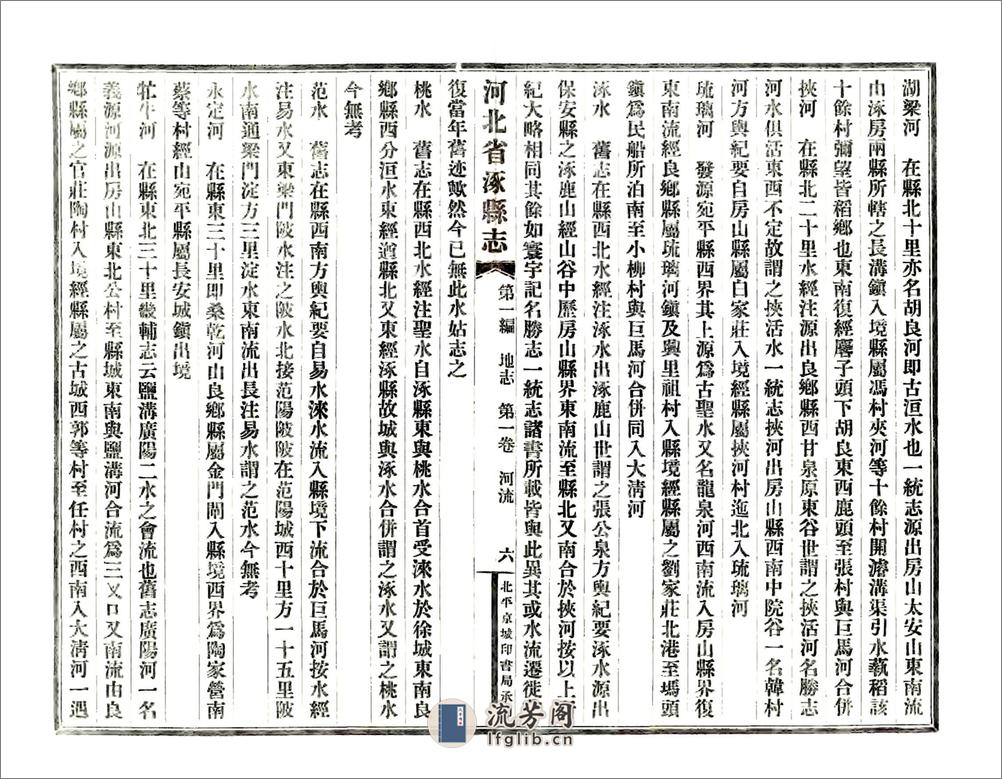 湖梁河　在縣北十里亦名胡良河即古洹水也一統志源出房山太安山東南流
由涿房兩縣所轄之長溝鎭入境縣屬馮村夾河等十餘村開濬溝渠引水蓺稻該
十餘村彌望皆稻鄉也東南復經麐子頭下胡良東西鹿頭至張村與巨馬河合併
挾河　在縣北二十里水經注源出良鄉縣西甘泉原東谷世謂之挾活河名勝志
河水俱活東西不定故謂之挾活水一統志挾河出房山縣西南中院谷一名韓村
河方輿紀要自房山縣屬白家莊入境經縣屬挾河村迤北入琉璃河
琉璃河　發源宛平縣西界其上源爲古聖水又名龍泉河西南流入房山縣界復
東南流經良鄉縣屬琉璃河鎭及興里祖村入縣境經縣屬之劉家莊北港至碼頭
鎭爲民船所泊南至小柳村與巨馬河合併同入大淸河
涿水　舊志在縣西北水經注涿水出涿鹿山世謂之張公泉方輿紀要涿水源出
保安縣之涿鹿山經山谷中歷房山縣界東南流至縣北又南合於挾河按以上二
紀大略相同其餘如寰宇記名勝志一統志諸書所載皆與此異其或水流遷徙
復當年舊迹歟然今已無此水姑志之
河北省涿縣志　第一編　地志　第一卷　河流　六　北平京城印書局承
桃水　舊志在縣西北水經注聖水自涿縣東與桃水合首受淶水於徐城東南良
鄉縣西分洹水東經遒縣北又東經涿縣故城與涿水合併謂之涿水又謂之桃水
今無考
范水　舊志在縣西南方輿紀要自易水淶水流入縣境下流合於巨馬河按水經
注易水又東梁門陂水注之陂水北接范陽陂陂在范陽城西十里方一十五里陂
水南通梁門淀方三里淀水東南流出長注易水謂之范水今無考
永定河　在縣東三十里即桑乾河由良鄉縣屬金門閘入縣境西界爲陶家營南
蔡等村經由宛平縣屬長安城鎭出境
牤牛河　在縣東北三十里畿輔志云鹽溝廣陽二水之會流也舊志廣陽河一名
義源河源出房山縣東北公村至縣城東南與鹽溝河合流爲三叉口又南流由良
鄉縣屬之官莊陶村入境經縣屬之古城西郭等村至任村之西南入大淸河一遇
流芳阁
lfglib.cn